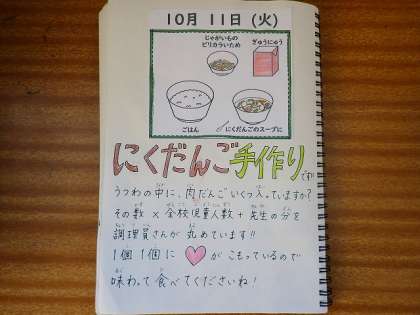 10月 11日 (火)
じゃがいもの
ピリカラいため
ぎゅうにゅう
ごはん
にくだんごのスープに
にくだんご手作りです!
うつわの中に、肉だんごいくつ入っていますか?
その数 × 全校児童人数 + 先生の分を
調理員さんが 丸めています!!
1個1個に ♡ が こもっているので
味わって 食べてくださいね!